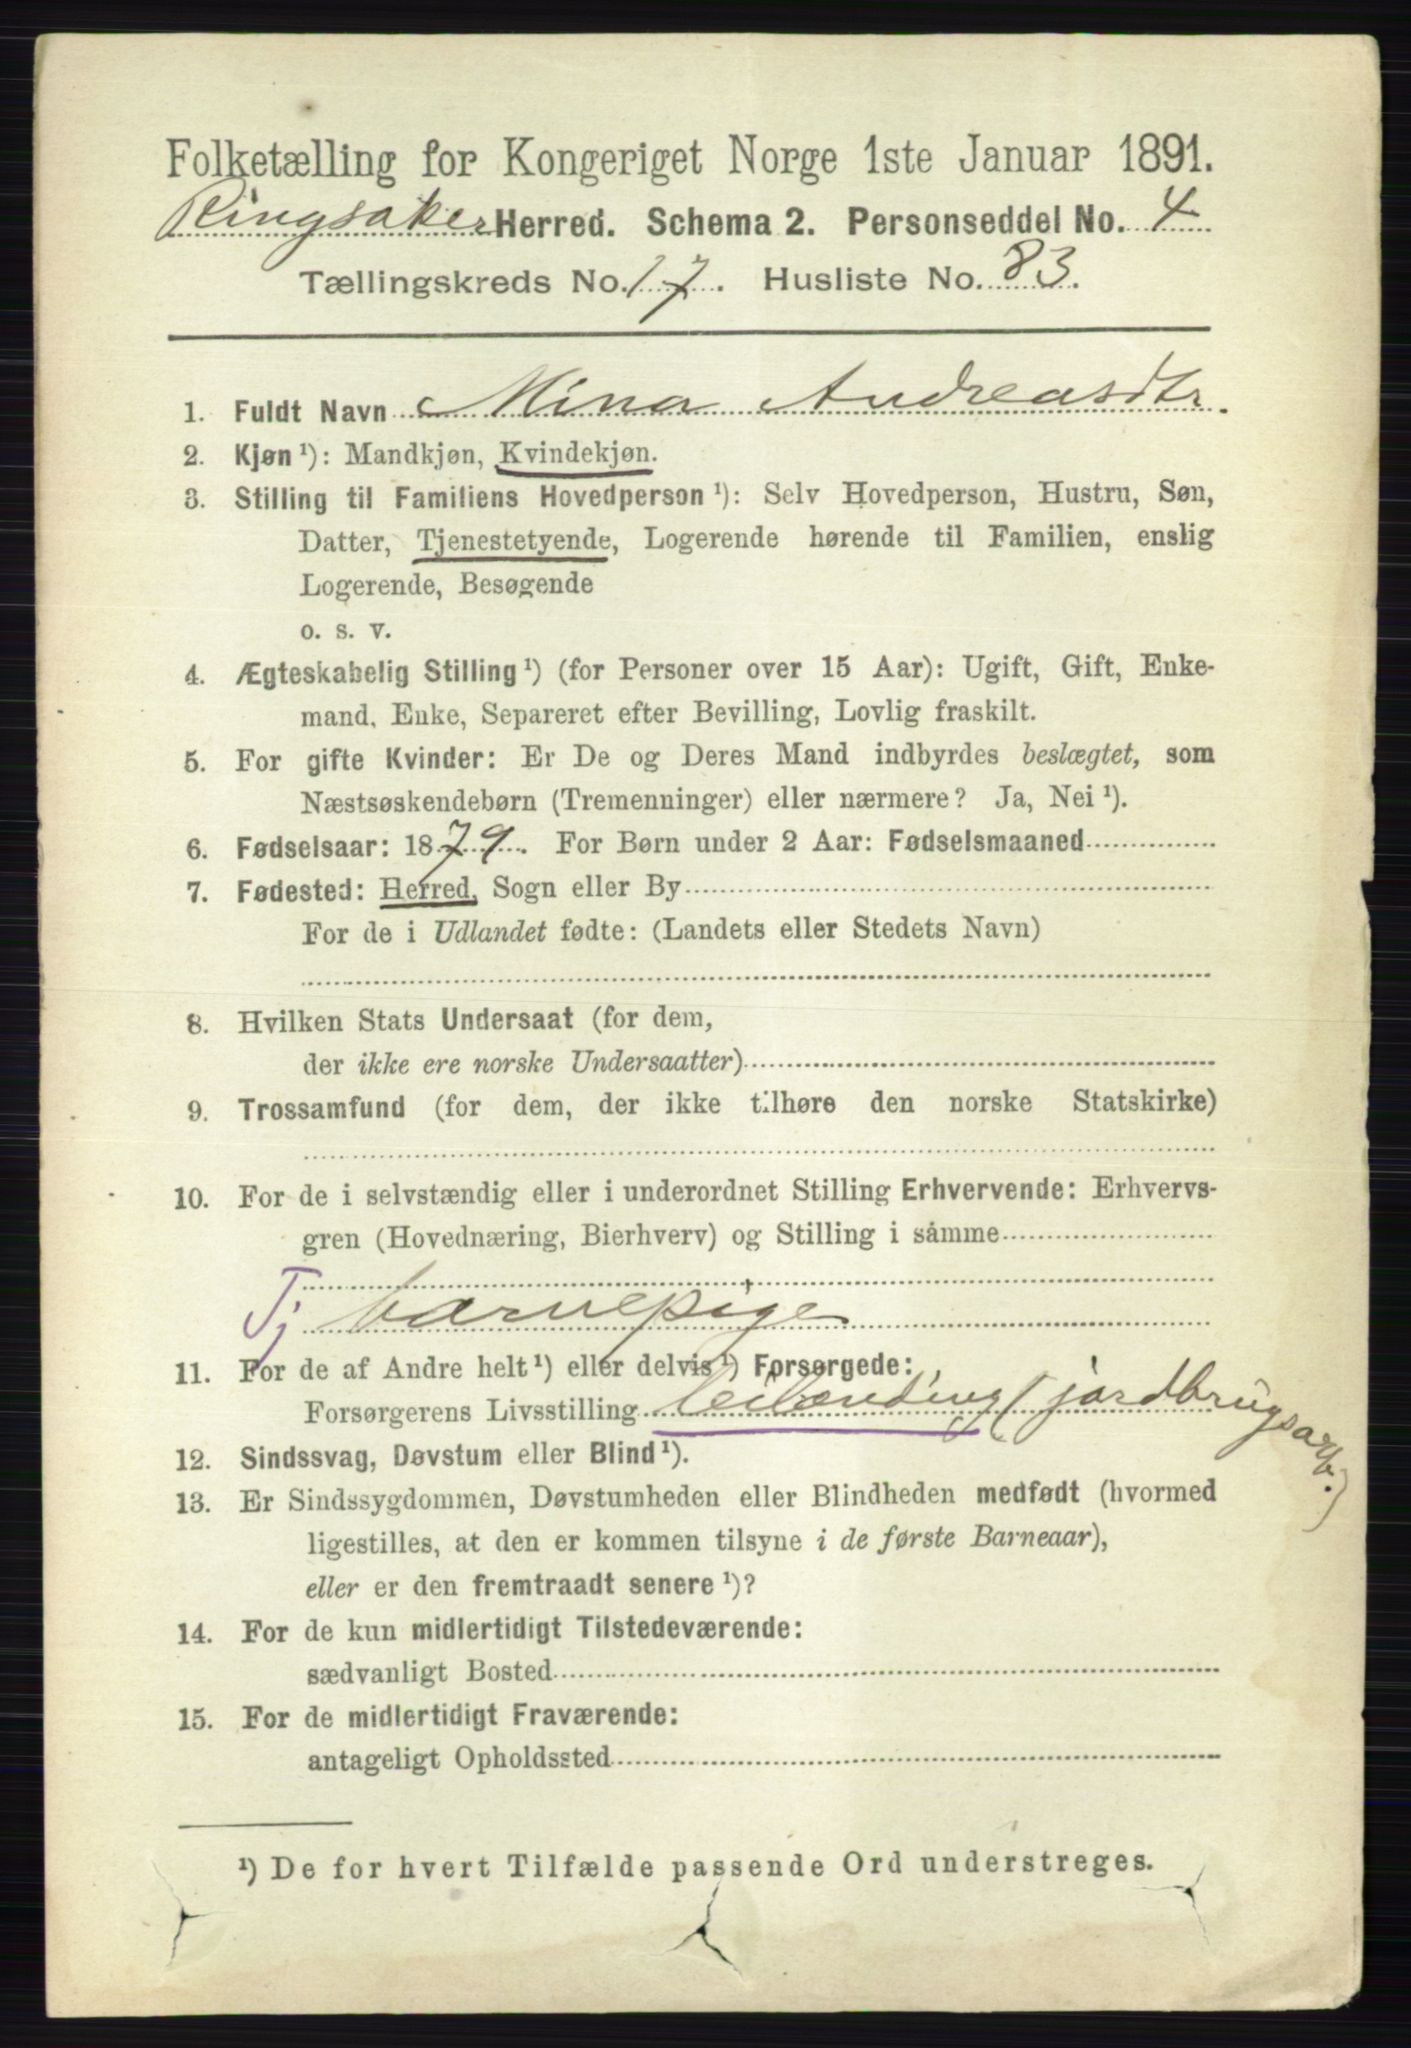 Folketælling for Kongeriget Norge 1ste Januar 1891.
Ringsaker Herred. Schema 2. Personseddel No. 4
Tællingskreds No. 17. Husliste No. 83.
1. Fuldt Navn Mina Andreasdtr.
2. Kjøn ¹): Mandkjøn, Kvindekjøn.
3. Stilling til Familiens Hovedperson ¹): Selv Hovedperson, Hustru, Søn,
Datter, Tjenestetyende, Logerende hørende til Familien, enslig
Logerende, Besøgende
o. s. v.
4. Ægteskabelig Stilling ¹) (for Personer over 15 Aar): Ugift, Gift, Enke-
mand, Enke, Separeret efter Bevilling, Lovlig fraskilt.
5. For gifte Kvinder: Er De og Deres Mand indbyrdes beslægtet, som
Næstsøskendebørn (Tremenninger) eller nærmere? Ja, Nei ¹).
6. Fødselsaar: 1879. For Børn under 2 Aar: Fødselsmaaned
7. Fødested: Herred, Sogn eller By
For de i Udlandet fødte: (Landets eller Stedets Navn)
8. Hvilken Stats Undersaat (for dem,
der ikke ere norske Undersaatter)
9. Trossamfund (for dem, der ikke tilhøre den norske Statskirke)
10. For de i selvstændig eller i underordnet Stilling Erhvervende: Erhvervs-
gren (Hovednæring, Bierhverv) og Stilling i samme
Tj barnepige
11. For de af Andre helt ¹) eller delvis ¹) Forsørgede:
Forsørgerens Livsstilling leilænding (jordbrugsarb.)
12. Sindssvag, Døvstum eller Blind ¹).
13. Er Sindssygdommen, Døvstumheden eller Blindheden medfødt (hvormed
ligestilles, at den er kommen tilsyne i de første Barneaar),
eller er den fremtraadt senere ¹)?
14. For de kun midlertidigt Tilstedeværende:
sædvanligt Bosted
15. For de midlertidigt Fraværende:
antageligt Opholdssted
¹) De for hvert Tilfælde passende Ord understreges.